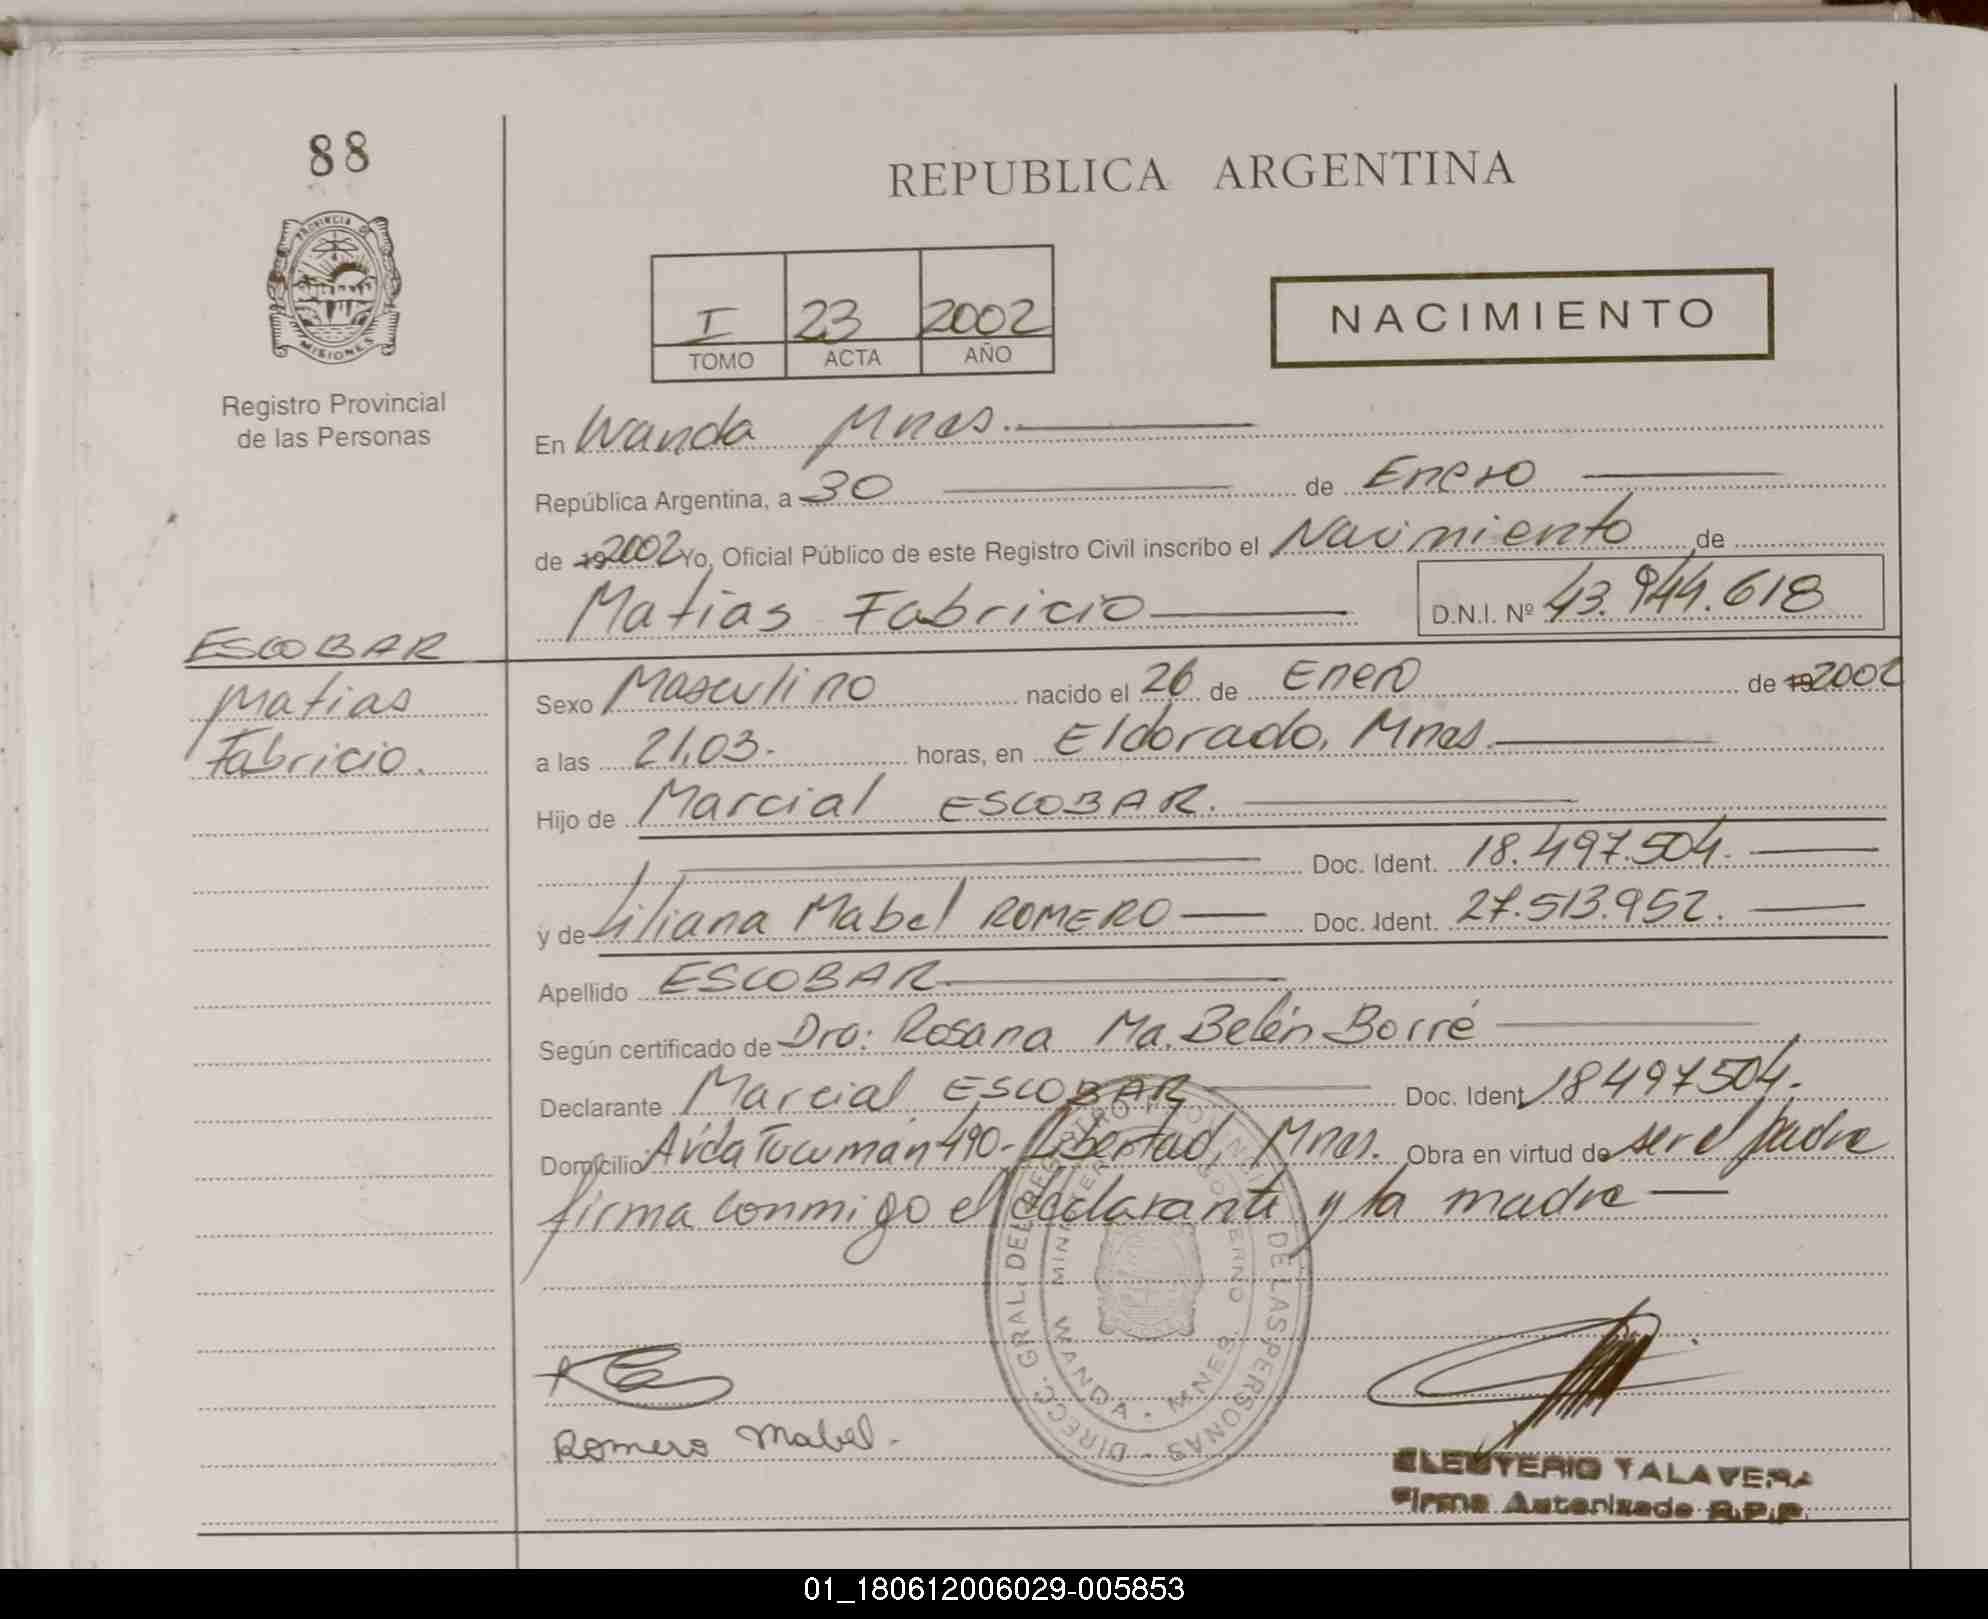 88
REPUBLICA ARGENTINA
PROVINCIA DE
MISIONES
Registro Provincial
de las Personas
I 23 2002
TOMO ACTA AÑO
NACIMIENTO
En Wanda Mnes.
República Argentina, a 30 de Enero
de 19 2002 Yo, Oficial Público de este Registro Civil inscribo el Nacimiento de
Matias Fabricio D.N.I. Nº 43.944.618
ESCOBAR
Matias
Fabricio.
Sexo Masculino nacido el 26 de Enero de 19 2002
a las 21,03. horas, en Eldorado, Mnes.
Hijo de Marcial ESCOBAR.
Doc. Ident. 18.497.504.
y de Liliana Mabel ROMERO Doc. Ident. 27.513.952.
Apellido ESCOBAR
Según certificado de Dra: Rosana Ma. Belén Borré
Declarante Marcial ESCOBAR Doc. Ident. 18497504.
Domicilio Avda Tucumán 490- Libertad, Mnes. Obra en virtud de ser el padre
firma conmigo el declarante y la madre
DIRECC. GRAL. DEL REGISTRO PROVINCIAL DE LAS PERSONAS
MINISTERIO GOBIERNO
WANDA - MNES.
Romero Mabel.
ELEUTERIO TALAVERA
Firma Autorizada R.P.P.
01_180612006029-005853